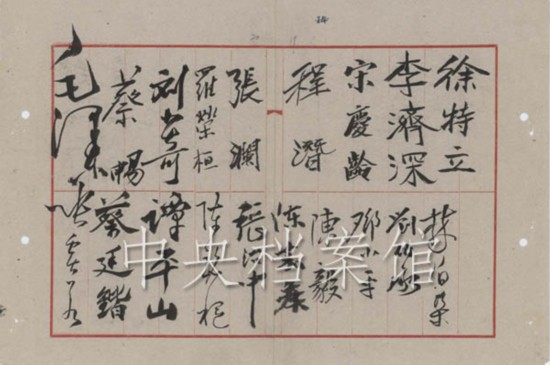 徐特立
李濟深
宋慶齡
程潛
張瀾
羅榮桓
刘少奇
蔡暢
毛泽东
林伯渠
劉伯承
鄧小平
陳毅
陈嘉庚
張治中
譚平山
蔡廷鍇
中央档案馆